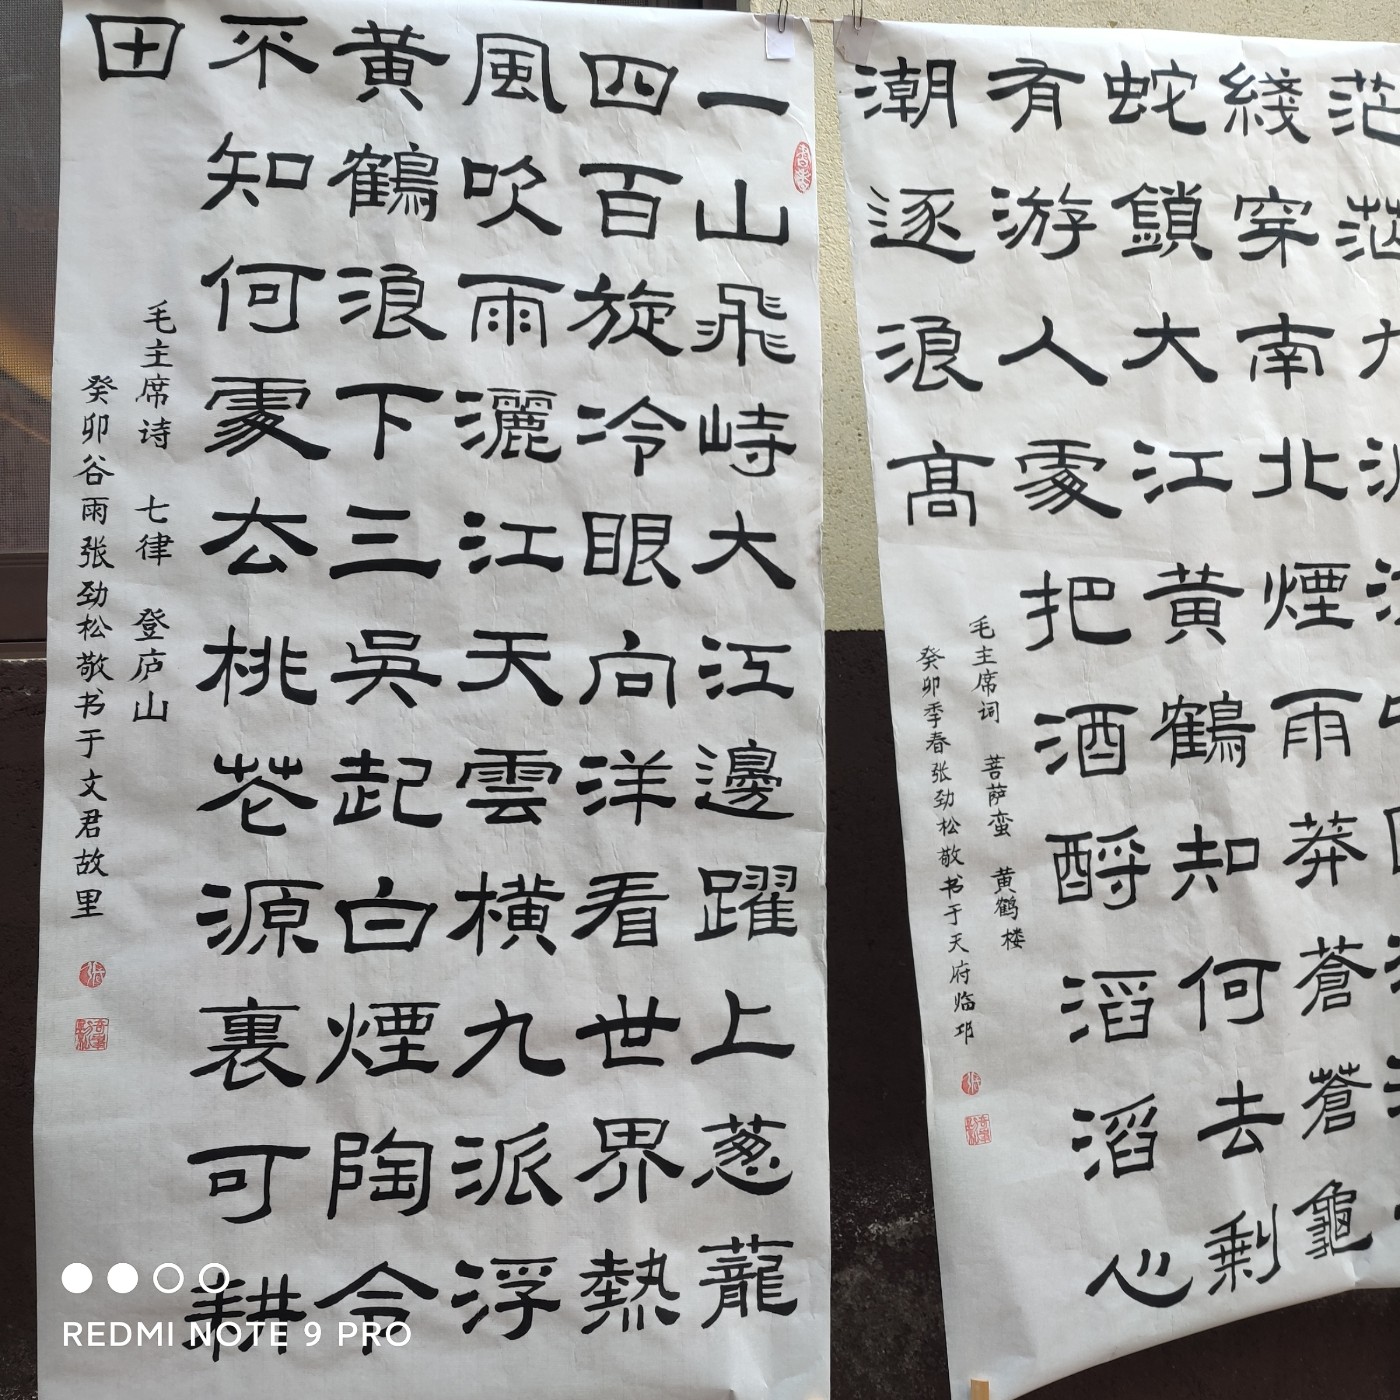 一山飛峙大江邊躍上葱蘢
四百旋冷眼向洋看世界熱
風吹雨灑江天雲横九派浮
黄鶴浪下三吳起白煙陶令
不知何處去桃花源裏可耕
田
毛主席诗 七律 登庐山
癸卯谷雨张劲松敬书于文君故里
茫茫
綫穿南北煙雨莽蒼蒼龜
蛇鎖大江黄鶴知何去剩
有游人處把酒酹滔滔心
潮逐浪高
毛主席词 菩萨蛮 黄鹤楼
癸卯季春张劲松敬书于天府临邛
REDMI NOTE 9 PRO